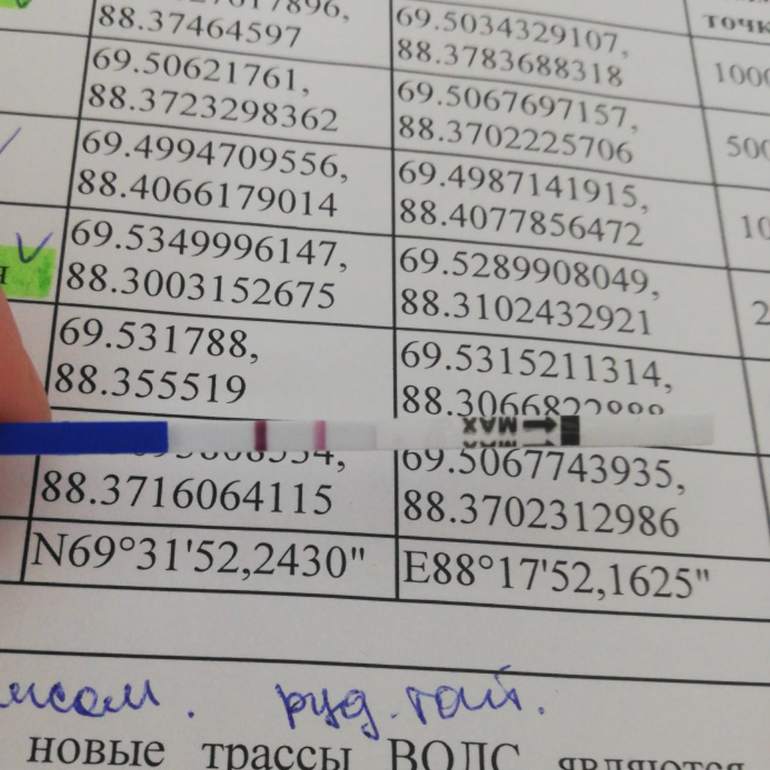 88.37464597
69.5034329107,
88.3783688318
1000
69.50621761,
88.3723298362
69.5067697157,
88.3702225706
500
69.4994709556,
88.4066179014
69.4987141915,
88.4077856472
10
69.5349996147,
88.3003152675
69.5289908049,
88.3102432921
2
69.531788,
88.355519
69.5315211314,
MAX
88.3716064115
69.5067743935,
88.3702312986
N69°31'52,2430"
E88°17'52,1625"
новые трассы ВОЛС являются